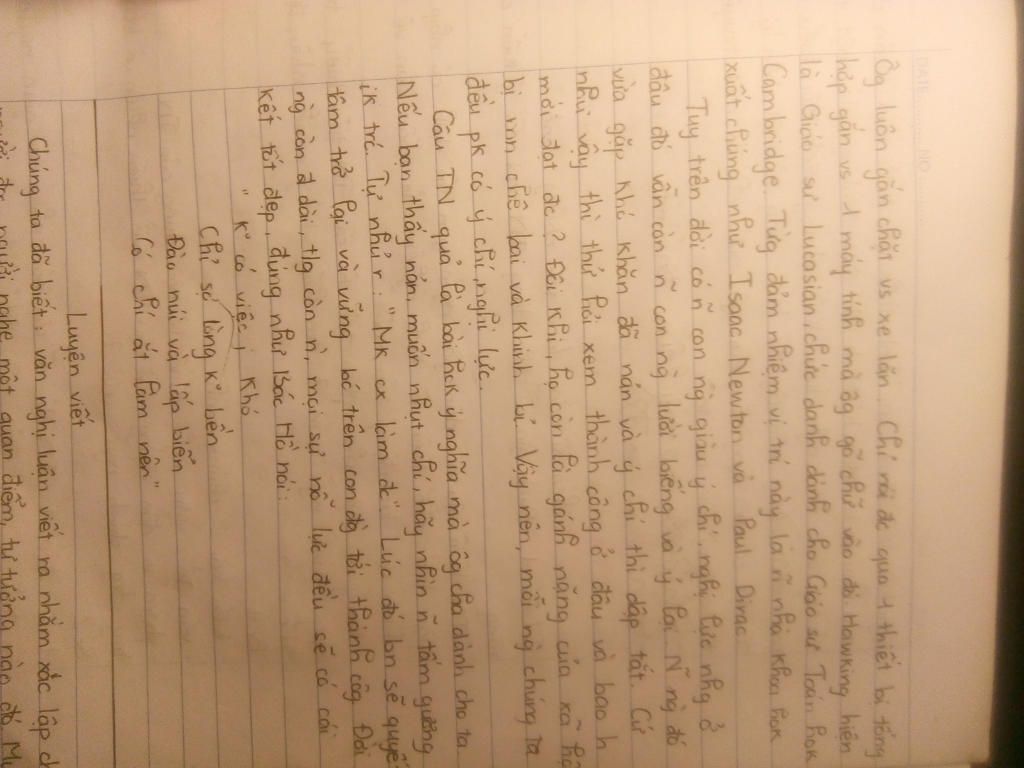 DATE NO
Ôg luôn gắn chặt vs xe lăn. Chỉ nói đc qua 1 thiết bị tổng
hợp gắn vs 1 máy tính mà ôg gõ chữ vào đó. Hawking hiện
là Giáo sư Lucasian, chức danh dành cho Giáo sư Toán hok
Cambridge. Từg đảm nhiệm vị trí này là ñ nhà khoa hok
xuất chúng như Isaac Newton và Paul Dirac
Tuy trên đời có ñ con ng giàu ý chí, nghị lực nhg ở
đâu đó vẫn còn ñ con ng lười biếng và ý lại. Ñ ng đó
vừa gặp khó khăn đã nản và ý chí thì dập tắt. Cứ
như vậy thì thử hỏi xem thành công ở đâu và bao h
mới đạt đc? Đôi khi, họ còn là gánh nặng của xã hộ
bị mn chê bai và khinh bỉ. Vậy nên, mỗi ng chúng ta
đều pk có ý chí, nghị lực.
Câu TN quả là bài hck ý nghĩa mà ôg cha dành cho ta
Nếu bạn thấy nản, muốn nhụt chí, hãy nhìn ñ tấm gương
ik trc. Tự nhủ r: "Mk cx làm đc". Lúc đó bn sẽ quyế
tâm trở lại và vững bc trên con đg tới thành côg. Đời
ng còn d dài, tlg còn n, mọi sự nỗ lực đều sẽ có cái
kết tốt đẹp, đúng như Bác Hồ nói:
" Ko có việc j khó
Chỉ sợ lòng ko bền
Đào núi và lấp biển
Có chí ắt làm nên"
Luyện viết
Chúng ta đã biết: văn nghị luận viết ra nhằm xác lập ch
người đọc người nghe một quan điểm, tư tưởng nào đó. Mu